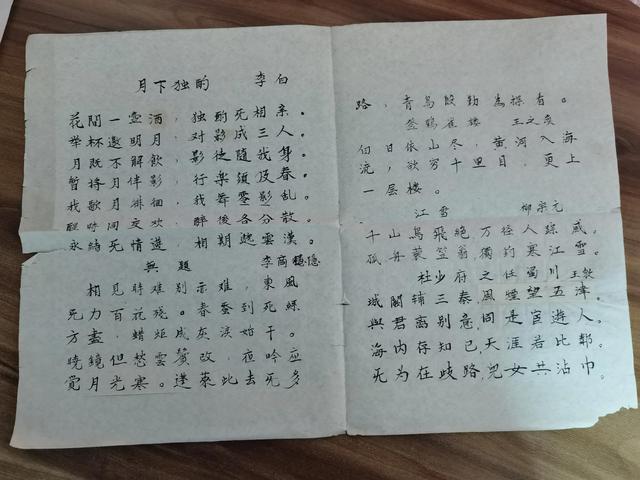 月下独酌 李白
花間一壶酒，独酌死相亲。
举杯邀明月，对影成三人。
月既不解飲，影徒随我身。
暫持月伴影，行楽須及春。
我歌月徘徊，我舞零影乱。
醒時同交欢，醉後各分散。
永結死情遊，相期邈雲漢。
無题 李商隐
相見時难别亦难，東風
死力百花残。春蚕到死絲
方盡，蜡炬成灰泪始干。
曉鏡但愁雲鬢改，夜吟应
覚月光寒。蓬萊此去死多
路，青鸟殷勤為探看。
登鸛雀楼 王之奂
白日依山尽，黄河入海
流，欲穷千里目，更上
一层楼。
江雪 柳宗元
千山鳥飛絶，万径人踪滅。
孤舟蓑笠翁，獨釣寒江雪。
杜少府之任蜀川 王勃
城闕辅三秦，風煙望五津。
與君离别意，同是宦遊人。
海内存知己，天涯若比鄰。
死为在歧路，兒女共沾巾。